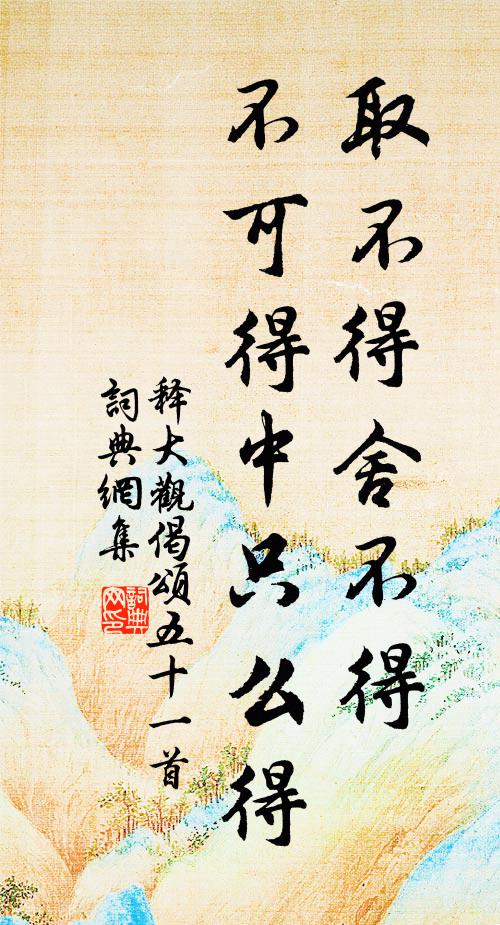 取不得舍不得
不可得中只么得
释大觀偈頌五十一首
詞典網集
詞典
网印